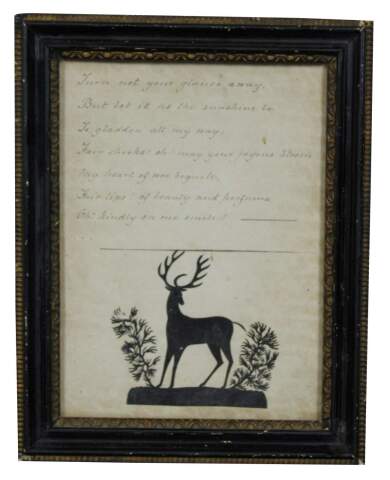 Turn not your glance away,
But let it as the sunshine be
To gladden all my way;
Fair cheeks! oh! may your joyous bloom
My heart of woe beguile,
Fair lips! of beauty and perfume
Oh! kindly on me smile!